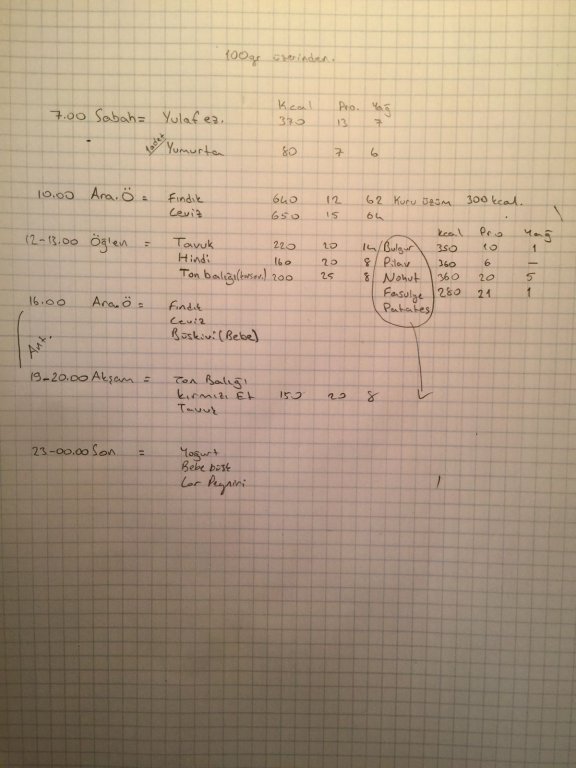 100gr üzerinden.
Kcal Pro. Yağ
7.00 Sabah = Yulaf ez. 370 13 7
1 adet Yumurta 80 7 6
10.00 Ara.Ö = Fındık 640 12 62 Kuru üzüm 300 kcal.
Ceviz 650 15 64
kcal Pro Yağ
12-13.00 Öğlen = Tavuk 220 20 14 / Bulgur 350 10 1
Hindi 160 20 8 Pilav 360 6 —
Ton balığı 200 25 8 Nohut 360 20 5
Fasulye 280 21 1
Patates
16.00 Ara.Ö = Fındık
Ceviz
Büskivi (Bebe)
Ant.
19-20.00 Akşam = Ton Balığı
Kırmızı Et 150 20 8
Tavuk
23-00.00 Son = Yogurt
Bebe büsk
Lor Peyniri